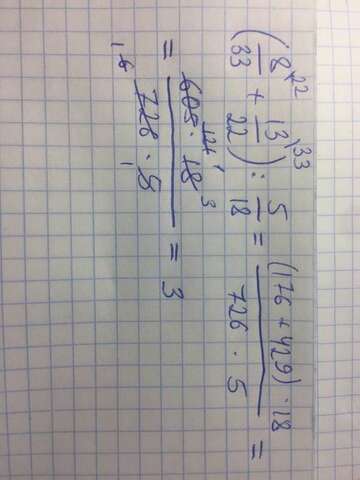 (8\22/33 + 13\33/22) : 5/18 = (176 + 429) · 18 / 726 · 5 =
= 605 121 · 18 3 / 726 6 · 5 1 = 3